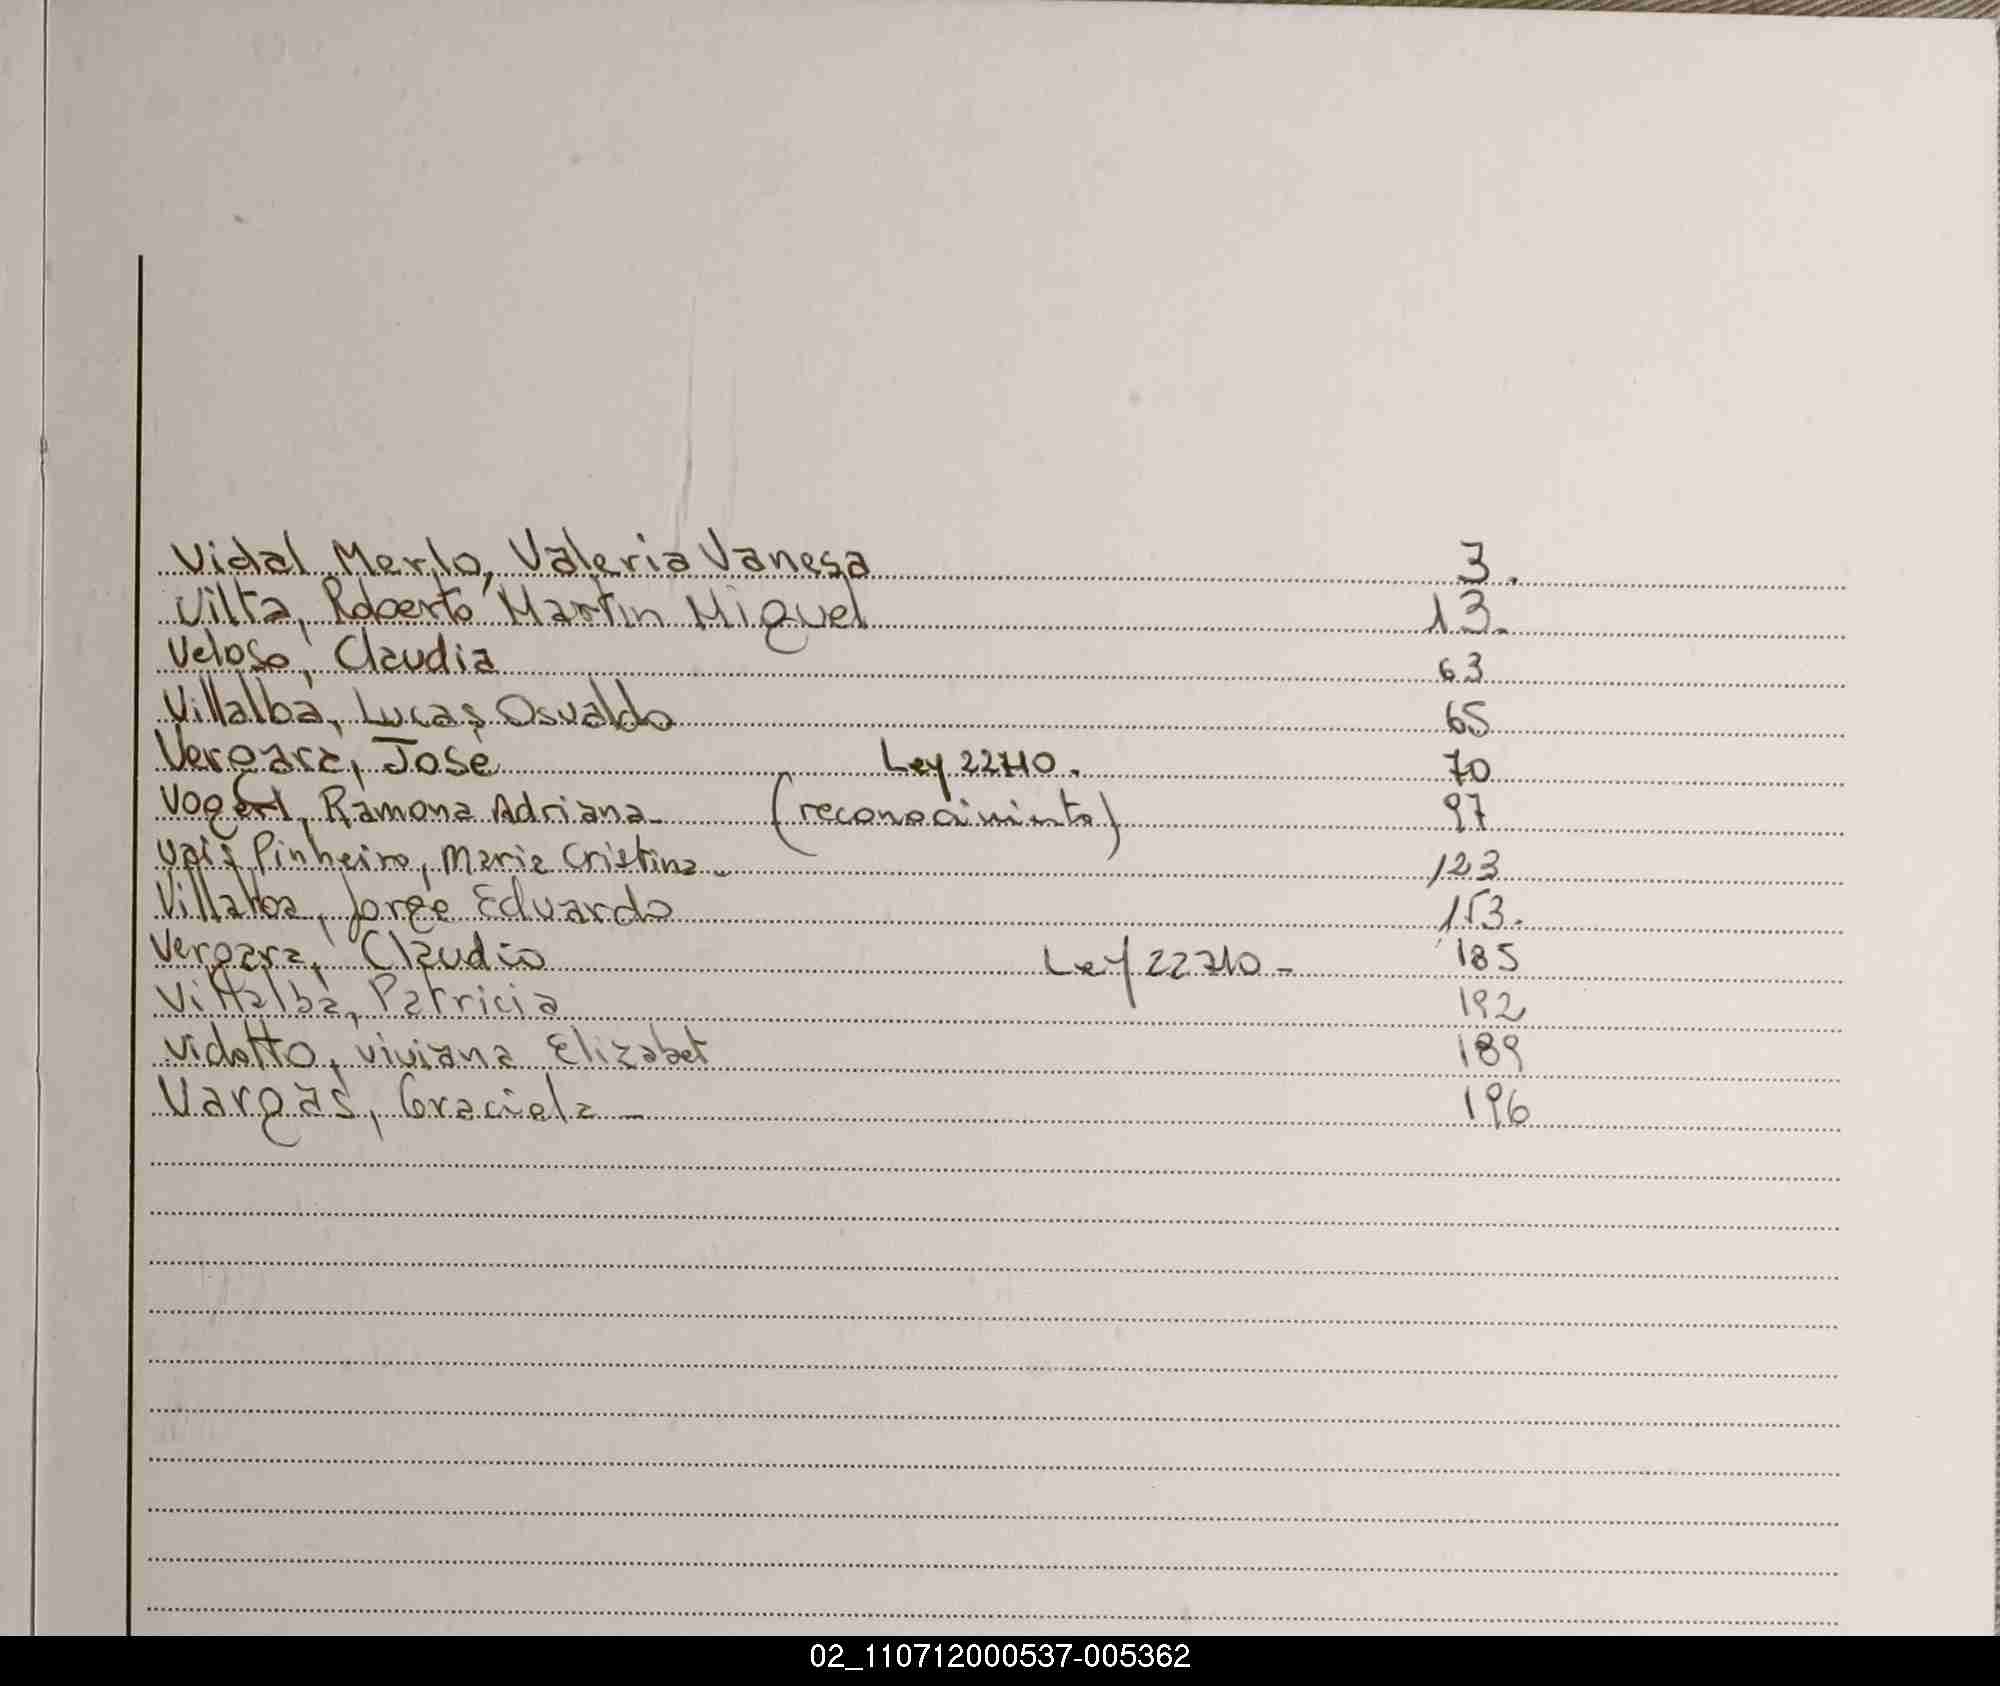 Vidal Merlo, Valeria Vanesa 3.
Vilta, Roberto Martin Miguel 13.
Veloso, Claudia 63
Villalba, Lucas Osvaldo 65
Vergara, José Ley 22710. 70
Vogert, Ramona Adriana (reconocimiento) 97
Pinheiro, Maria Cristina 123
Villalba, Jorge Eduardo 153.
Vergara, Claudio Ley 22710 - 185
Villalba, Patricia 192
Vidotto, Viviana Elizabet 189
Vargas, Graciela - 196
02_110712000537-005362